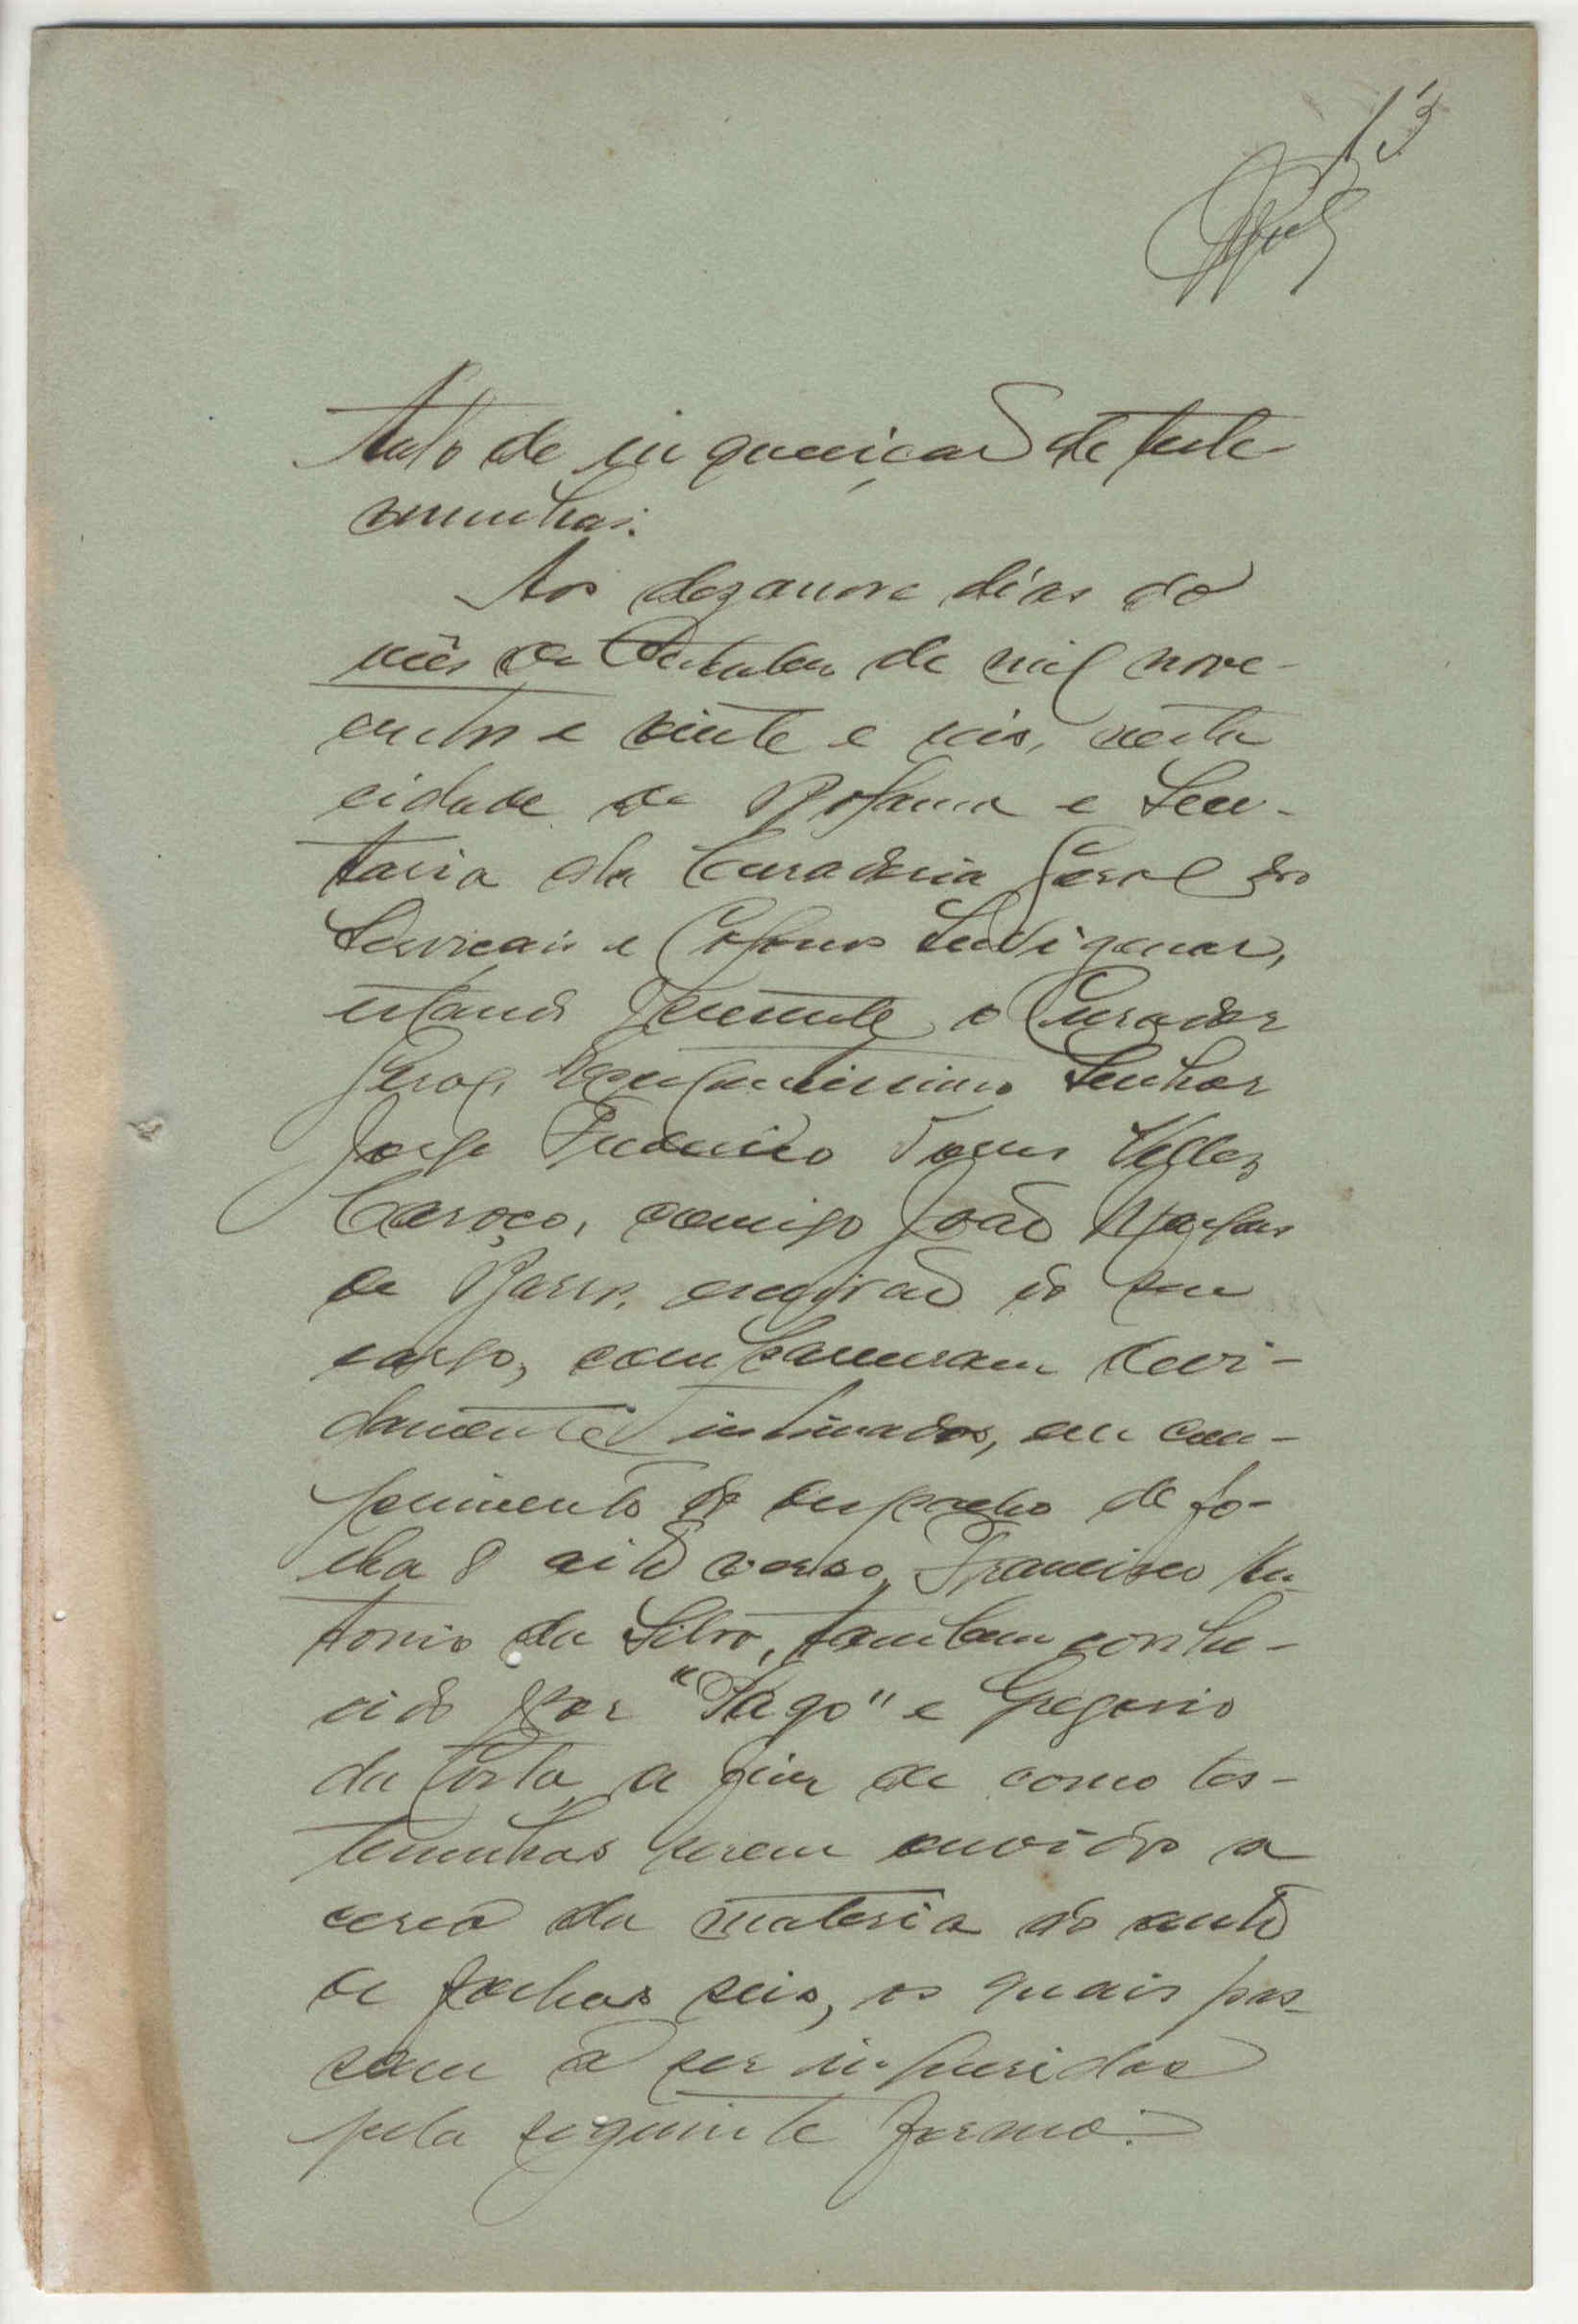 13
Auto de inquirição de teste-
munhas:
Aos dezanove dias do
mês de Outubro de mil nove-
centos e vinte e seis, nesta
cidade de Bolama e Secre-
taria da Curadoria Geral dos
Serviçais e Colonos Indigenas,
estando presente o Curador
Geral, Excelentissimo Senhor
Jorge Frederico Torres Vellez
Caroço, comigo João
de Barros, escrivão do seu
cargo, compareceram devi-
damente intimados, em cum-
primento do despacho de fo-
lha 8 oito verso, Francisco An-
tonio da Silva, tambem conhe-
cido por "Iago" e Gregorio
da Costa, a fim de como tes-
temunhas serem ouvidos a
cerca da materia do auto
de folhas seis, os quais pas-
sam a ser inqueridos
pela seguinte forma: